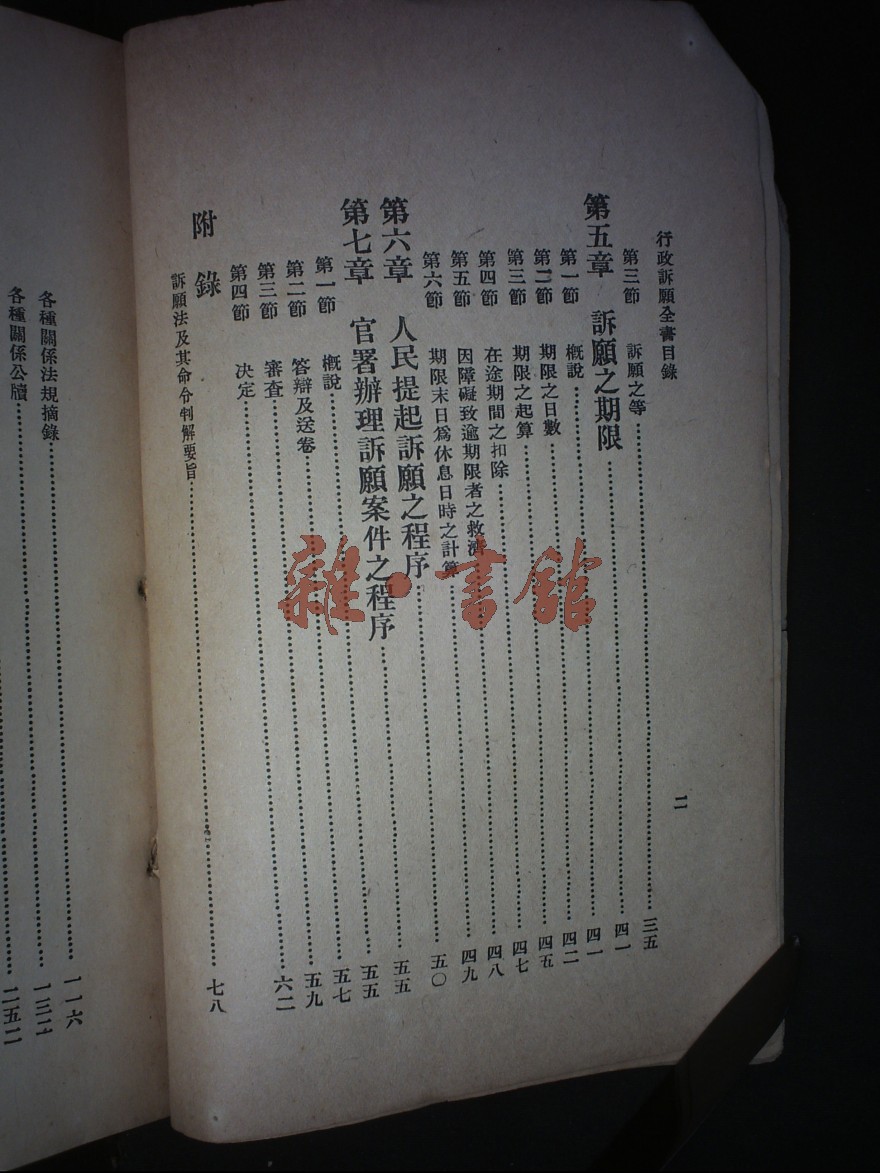 行政訴願全書目錄
二
第三節 訴願之等 三五
第五章 訴願之期限 四一
第一節 概說 四一
第二節 期限之日數 四二
第三節 期限之起算 四五
第四節 在途期間之扣除 四七
第五節 因障礙致逾期限者之救濟 四八
第六節 期限末日爲休息日時之計算 四九
第六章 人民提起訴願之程序 五〇
第七章 官署辦理訴願案件之程序 五五
第一節 概說 五五
第二節 答辯及送卷 五七
第三節 審查 五九
第四節 決定 六二
附錄
訴願法及其命令判解要旨 七八
各種關係法規摘錄 一一六
各種關係公牘 一三二
二五二
雜·書館